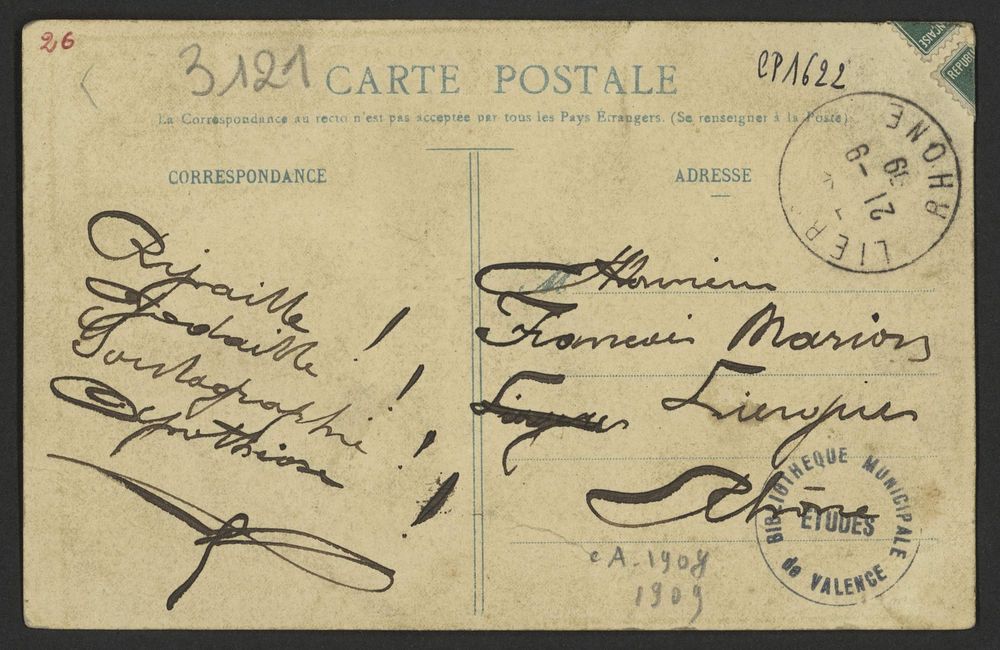 26
3121
CARTE POSTALE
CP1622
La Correspondance au recto n'est pas acceptée par tous les Pays Étrangers. (Se renseigner à la Poste)
CORRESPONDANCE
ADRESSE
RHONE
21 -9
09
LIER
RÉPUBL
NÇAISE
Ripaille !
Godaille !
Soulographie !
Apothéose !
Monsieur
Francois Marion
Liergues
Rhône
BIBLIOTHEQUE MUNICIPALE
ETUDES
de VALENCE
CA. 1909
1909